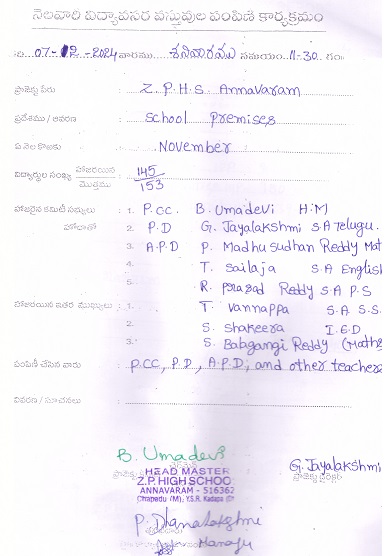 నెలవారి విద్యావసర వస్తువుల పంపిణీ కార్యక్రమం
ది 07-12-2024 వారము శనివారము సమయం 11-30 గం
ప్రాజెక్టు పేరు : Z.P.H.S Annavaram
ప్రదేశము / ఆవరణ : School Premises
ఏ నెల కొరకు : November
విద్యార్థుల సంఖ్య హాజరయిన / మొత్తము : 145/153
హాజరైన కమిటీ సభ్యులు : 1. P.CC. B. Umadevi H.M
హోదాతో 2. P.D G. Jayalakshmi S.A Telugu.
3. A.P.D P. Madhu Sudhan Reddy Mat
4. T. Sailaja S.A English
5. R. Prasad Reddy S.A P.S
హాజరయిన ఇతర ముఖ్యులు : 1. T. Vannappa S.A S.S.
2. S. Shakeera I.E.D
3. S. Babgangi Reddy (Maths
పంపిణీ చేసిన వారు : P.CC, P.D, A.P.D, and other teachers
వివరణ / సూచనలు :
B. Umadevi
HEAD MASTER
Z.P. HIGH SCHOO
ANNAVARAM - 516362
Chapadu (M), Y.S.R. Kadapa (Dt
G. Jayalakshmi
ప్రాజెక్టు డైరెక్టర్
P. Dhanalakshmi